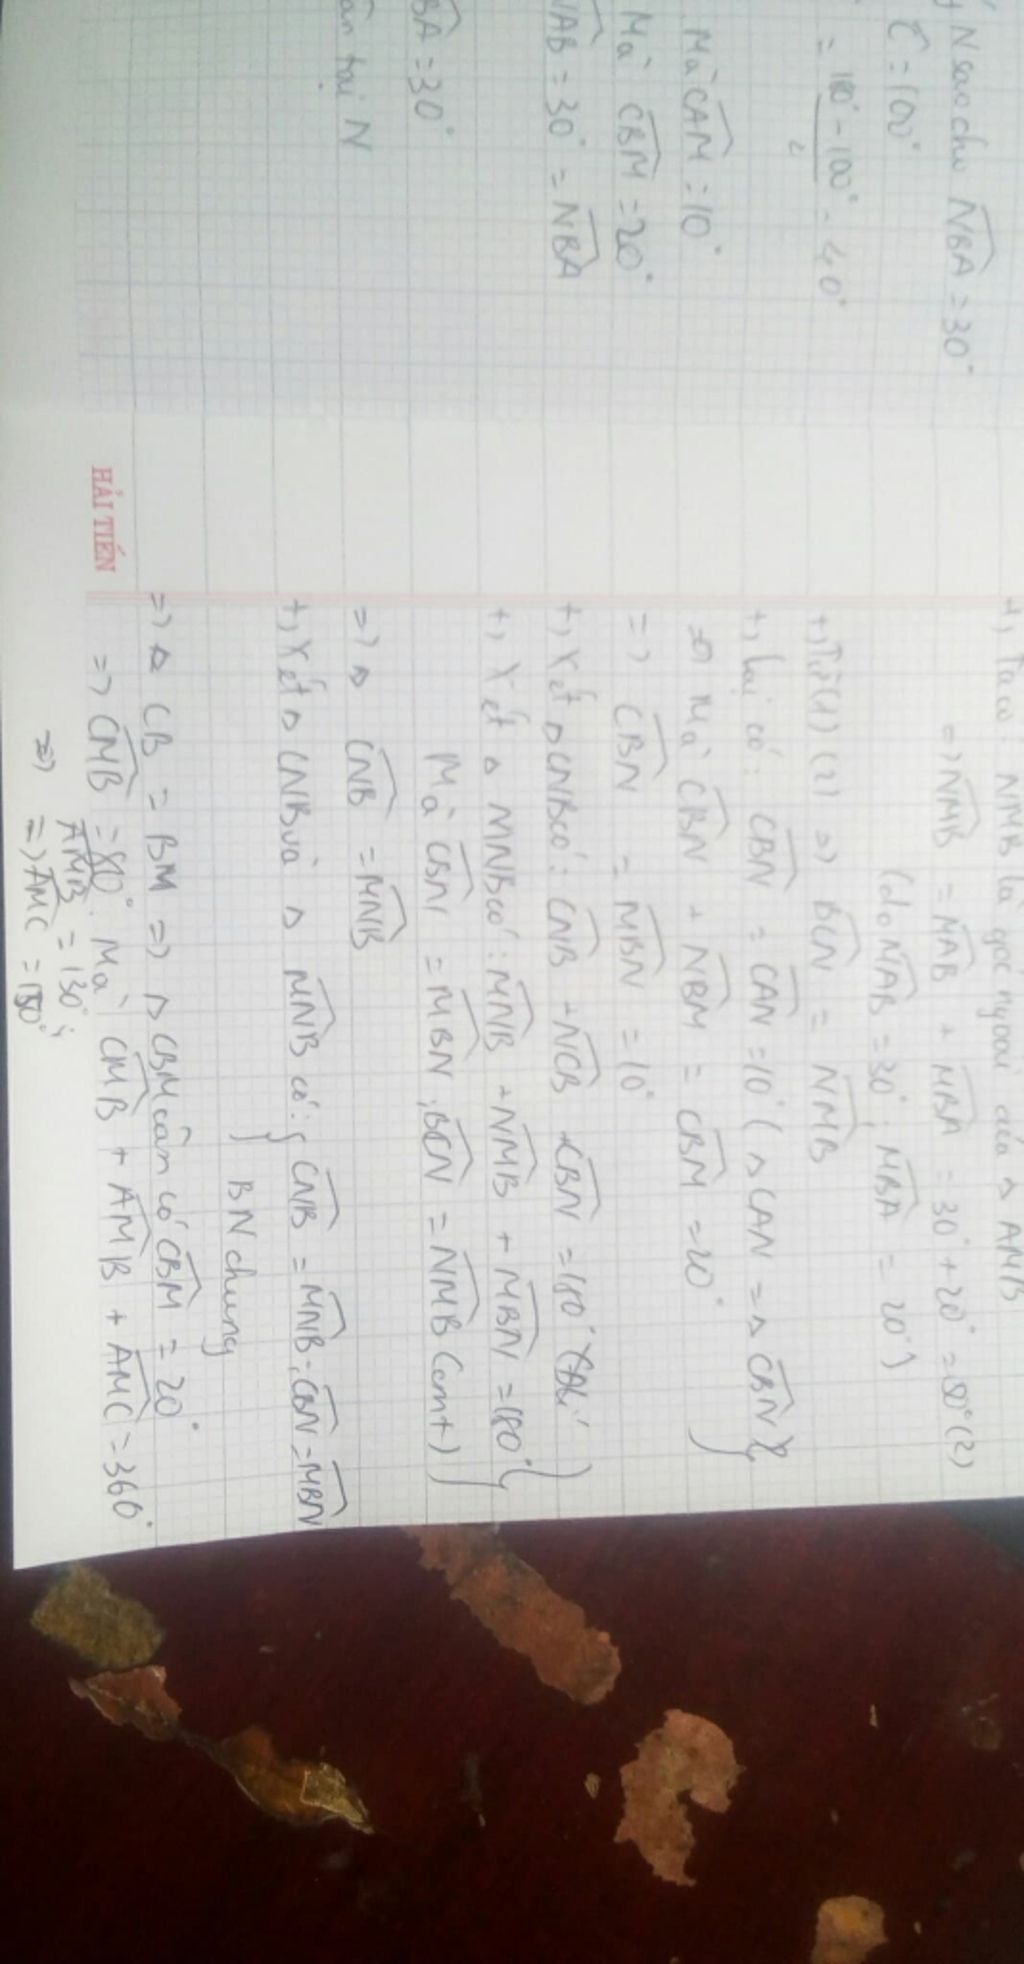 N sao cho NBA = 30°
C = 100°
= 180° - 100° = 40°
2
Mà CAM = 10°
Mà CBM = 20°
NAB = 30° = NBA
BA = 30°
ân tại N
HẢI TIẾN
+, Ta có: NMB là góc ngoài của Δ AMB
=> NMB = MAB + MBA = 30° + 20° = 50° (2)
(do NAB = 30°; MBA = 20°)
+, Từ (1) (2) => BCN = NMB
+, Lại có: CBN = CAN = 10° (Δ CAN = Δ CBN)
Mà CBN + NBM = CBM = 20°
=> CBN = MBN = 10°
+, Xét Δ CNB có: CNB + NCB + CBN = 180°
+, Xét Δ MNB có: MNB + NMB + MBN = 180°
Mà CBN = MBN; BCN = NMB (cmt)
=> Δ CNB = MNB
+, Xét Δ CNB và Δ MNB có: CNB = MNB; CBN = MBN
BN chung
=> Δ CB = BM => Δ CBM cân có CBM = 20°
=> CMB = 80°. Mà CMB + AMB + AMC = 360°
AMB = 130°;
=> AMC = 150°